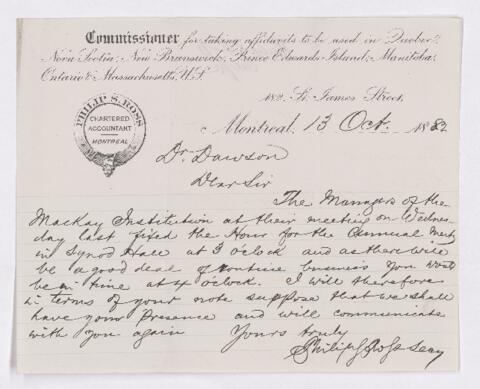 Commissioner for taking affidavits to be used in Quebec,
Nova Scotia, New Brunswick, Prince Edwards Island, Manitoba,
Ontario & Massachusetts, U.S.
St. James Street,
PHILIP S. ROSS
CHARTERED
ACCOUNTANT
MONTREAL
Montreal, 13 Oct. 1882
Dr. Dawson
Dear Sir
The Managers of the
Mackay Institution at their meeting on Wednes-
day last fixed the Hour for the Annual Meetg
in Synod Hall at 3 oclock and as there will
be a good deal of routine business you wont
be in time at 4 oclock. I will therefore
in terms of your note suppose that we shall
have your Presence and will communicate
with you again Yours truly
Philip S Ross Secy